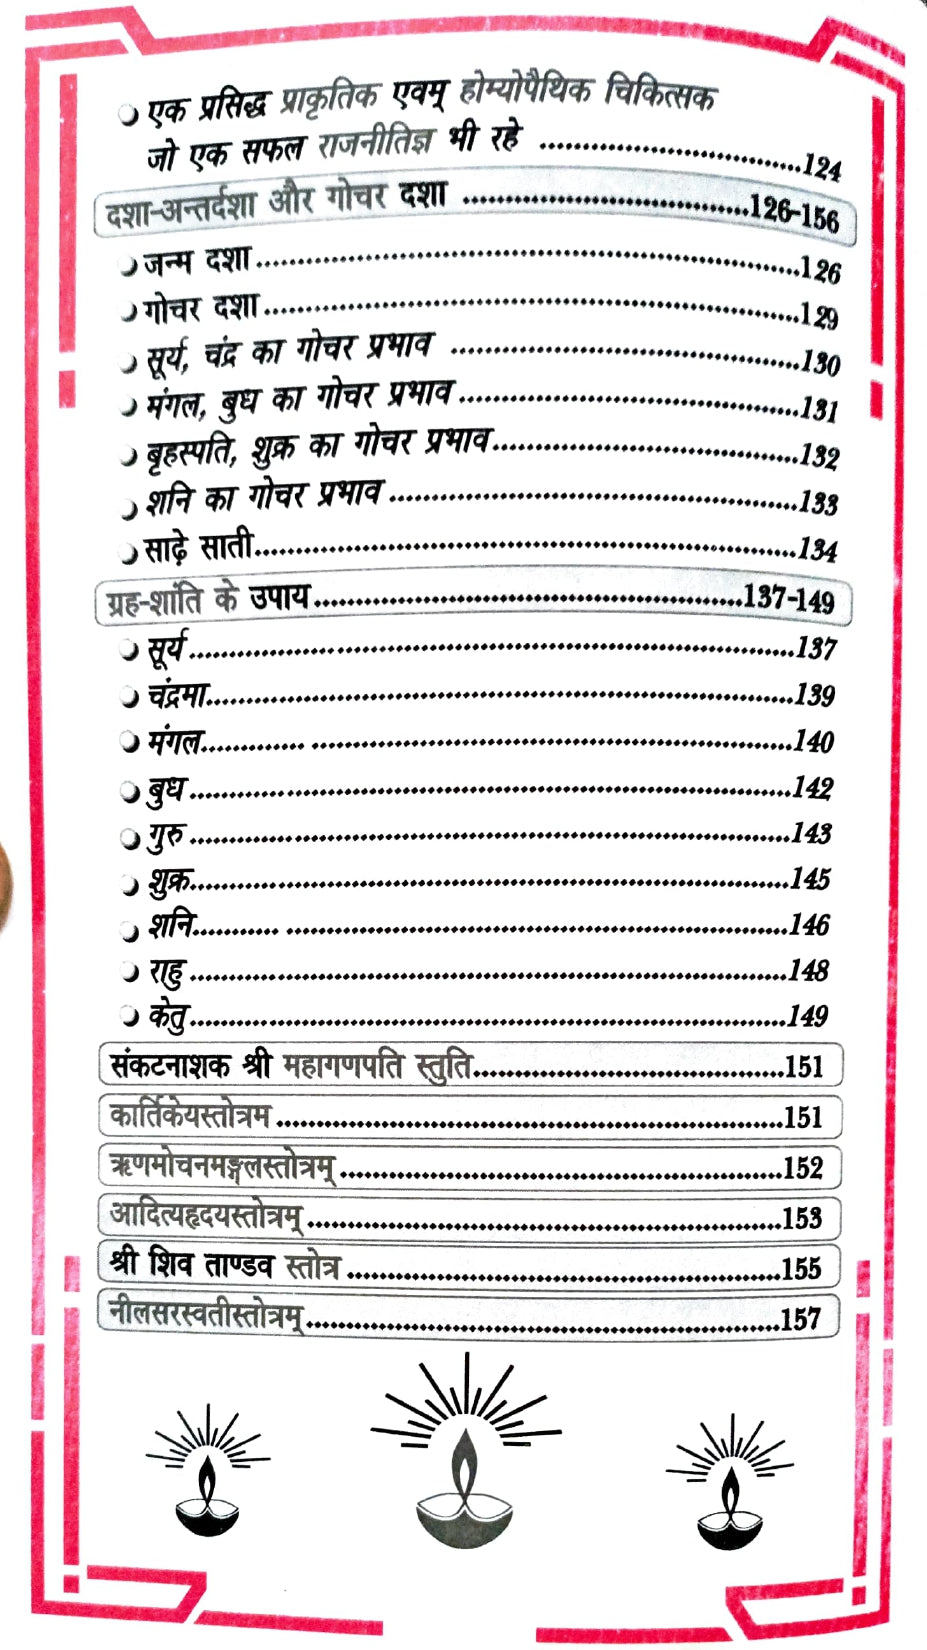 एक प्रसिद्ध प्राकृतिक एवम् होम्योपैथिक चिकित्सक
जो एक सफल राजनीतिज्ञ भी रहे ..............................124
दशा-अन्तर्दशा और गोचर दशा ..............................126-156
जन्म दशा..............................126
गोचर दशा..............................129
सूर्य, चंद्र का गोचर प्रभाव ..............................130
मंगल, बुध का गोचर प्रभाव..............................131
बृहस्पति, शुक्र का गोचर प्रभाव..............................132
शनि का गोचर प्रभाव..............................133
साढ़े साती..............................134
ग्रह-शांति के उपाय..............................137-149
सूर्य..............................137
चंद्रमा..............................139
मंगल..............................140
बुध..............................142
गुरु..............................143
शुक्र..............................145
शनि..............................146
राहु..............................148
केतु..............................149
संकटनाशक श्री महागणपति स्तुति..............................151
कार्तिकेयस्तोत्रम..............................151
ऋणमोचनमङ्गलस्तोत्रम्..............................152
आदित्यहृदयस्तोत्रम्..............................153
श्री शिव ताण्डव स्तोत्र..............................155
नीलसरस्वतीस्तोत्रम्..............................157